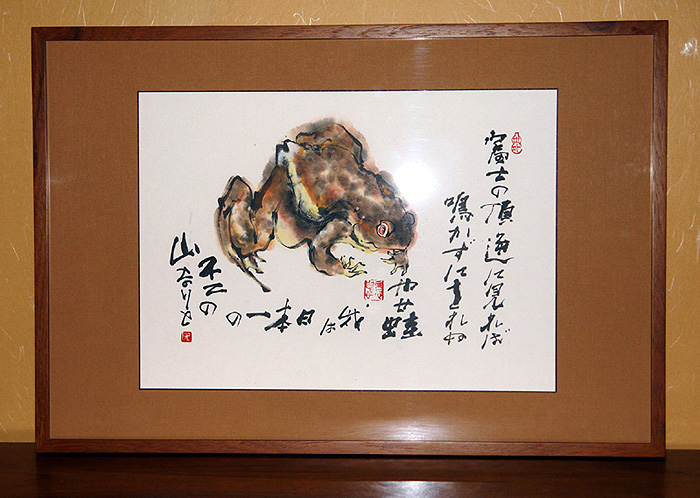 富士の頂逆に見れば
鳴かずに居れぬ
やせ蛙
我は
日本一
の
不二の
山なりと